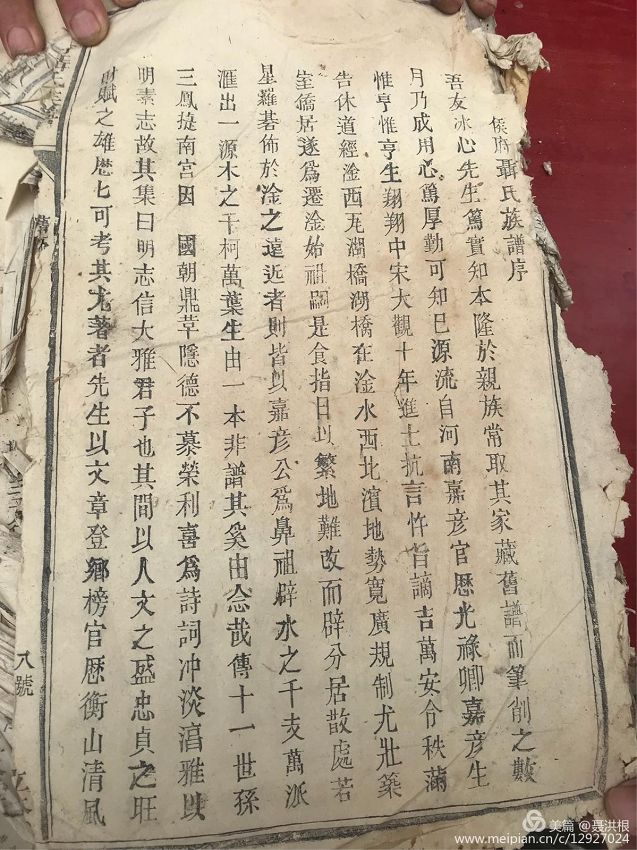 侯府聶氏族譜序
吾友冰心先生篤實知本隆於親族常取其家藏舊譜而筆削之數
月乃成用心篤厚勤可知已源流自河南嘉彥官歷光祿卿嘉彥生
惟亨惟亨生翔翔中宋大觀十年進士抗言忤旨謫吉萬安令秩滿
告休道經淦西瓦湖橋湖橋在淦水西北濱地勢寬廣規制尤壯築
室僑居遂爲遷淦始祖嗣是食指日以繁地難改而辟分居散處若
星羅碁佈於淦之遠近者則皆以嘉彥公爲鼻祖辟水之千支萬派
滙出一源木之千柯萬葉生由一本非譜其奚由念哉傳十一世孫
三鳳捷南宮因 國朝鼎革隱德不慕榮利喜爲詩詞冲淡温雅以
明素志故其集曰明志信大雅君子也其間以人文之盛忠貞之旺
財賦之雄歷七可考其尤著者先生以文章登鄉榜官歷衡山清風
八號
美篇 @聂洪根
www.meipian.cn/c/12927024